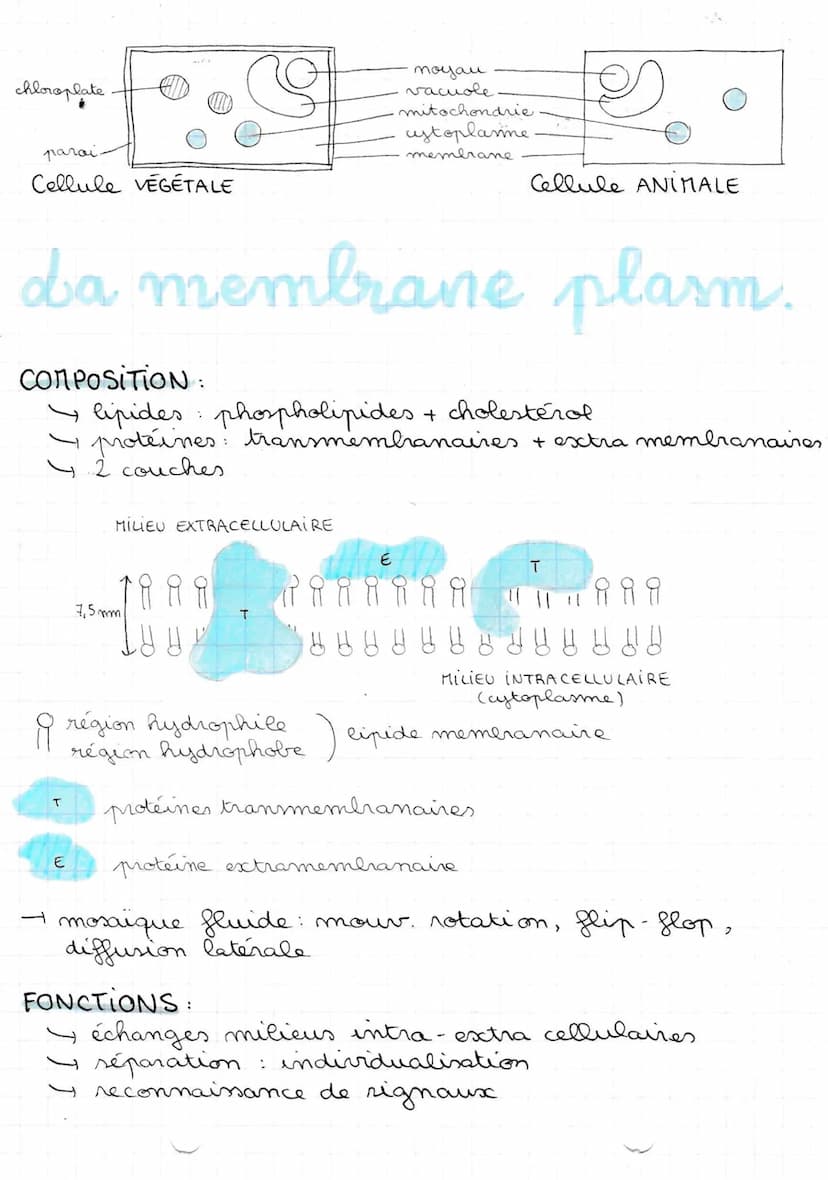 chloroplate
paroi
noyau
vacuole
mitochondrie
cytoplasme
membrane
Cellule VÉGÉTALE
Cellule ANIMALE
La membrane plasm.
COMPOSITION :
↳ lipides : phospholipides + cholestérol
↳ protéines : transmembranaires + extra membranaires
↳ 2 couches
MILIEU EXTRACELLULAIRE
E
T
T
7,5 nm
MILIEU INTRACELLULAIRE
(cytoplasme)
région hydrophile
région hydrophobe
) lipide membranaire
T protéines transmembranaires
E protéine extramembranaire
→ mosaïque fluide : mouv. rotation, flip-flop,
diffusion latérale
FONCTIONS :
↳ échanges milieus intra-extra cellulaires
↳ séparation : individualisation
↳ reconnaissance de signaux